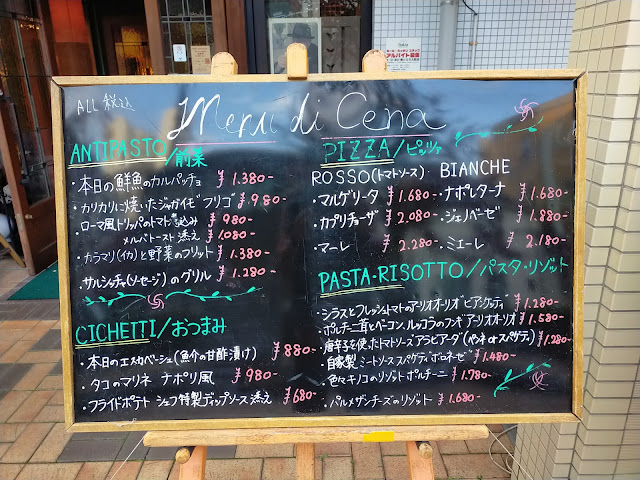 ALL 税込
Menu di Cena
ANTIPASTO/前菜
・本日の鮮魚のカルパッチョ ¥1.380-
・カリカリに焼いたジャガイモ フリゴ ¥980-
ローマ風トリッパのトマト煮込み ¥980-
メルバトースト添え ¥1.080-
・カラマリ(イカ)と野菜のフリット ¥1.380-
・サルシッチャ(ソーセージ)のグリル ¥1.280-
CICHETTI/おつまみ
・本日のエスカベーシュ(魚介の甘酢漬け) ¥880-
・タコのマリネ ナポリ風 ¥980-
・フライドポテト シェフ特製ディップソース添え ¥680-
PIZZA/ピッツァ
ROSSO(トマトソース)・BIANCHE
・マルゲリータ ¥1.680- ・ナポレターナ ¥1.680-
・カプリチョーザ ¥2.080- ・ジェノベーゼ ¥1.880-
・マーレ ¥2.280- ・ミエーレ ¥2.180-
PASTA・RISOTTO/パスタ・リゾット
・シラスとフレッシュトマトのアーリオオーリオ ビアンケッティ ¥1.280-
・ポルチーニ茸とベーコン、ルッコラのフンギ アーリオオーリオ ¥1.580-
・唐辛子を使ったトマトソース アラビアータ (ペンネorスパゲティ) ¥1.280-
・自家製ミートソーススパゲティ ボロネーゼ ¥1.480-
・色々キノコのリゾット ポルチーニ ¥1.780-
・パルメザンチーズのリゾット ¥1.680-
アルバイト募集